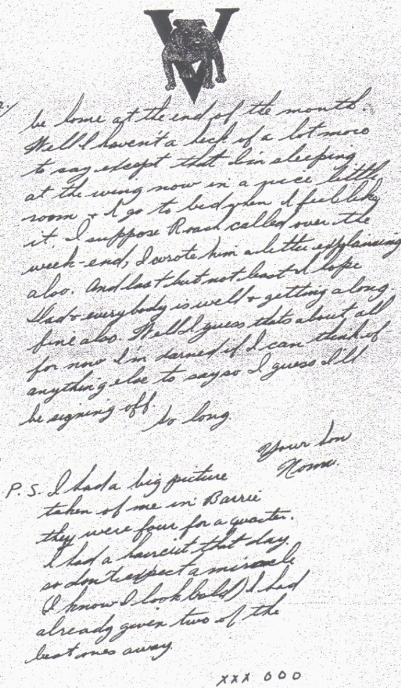 V
2/
be home at the end of the month.
Well I haven't a heck of a lot more
to say except that I'm sleeping
at the wing now in a nice little
room & I go to bed when I feel like
it. I suppose called over the
week-end, I wrote him a letter explaining
also. And last but not least I hope
Dad & everybody is well & getting along
fine also. Well I guess thats about all
for now I'm darned if I can think of
anything else to say so I guess I'll
be signing off.
So long
Your Son
Norm.
P.S. I had a big picture
taken of me in Barrie
they were four for a quarter.
I had a haircut that day
so don't expect a miracle
(I know I look bald) I had
already given two of the
best ones away.
xxx ooo